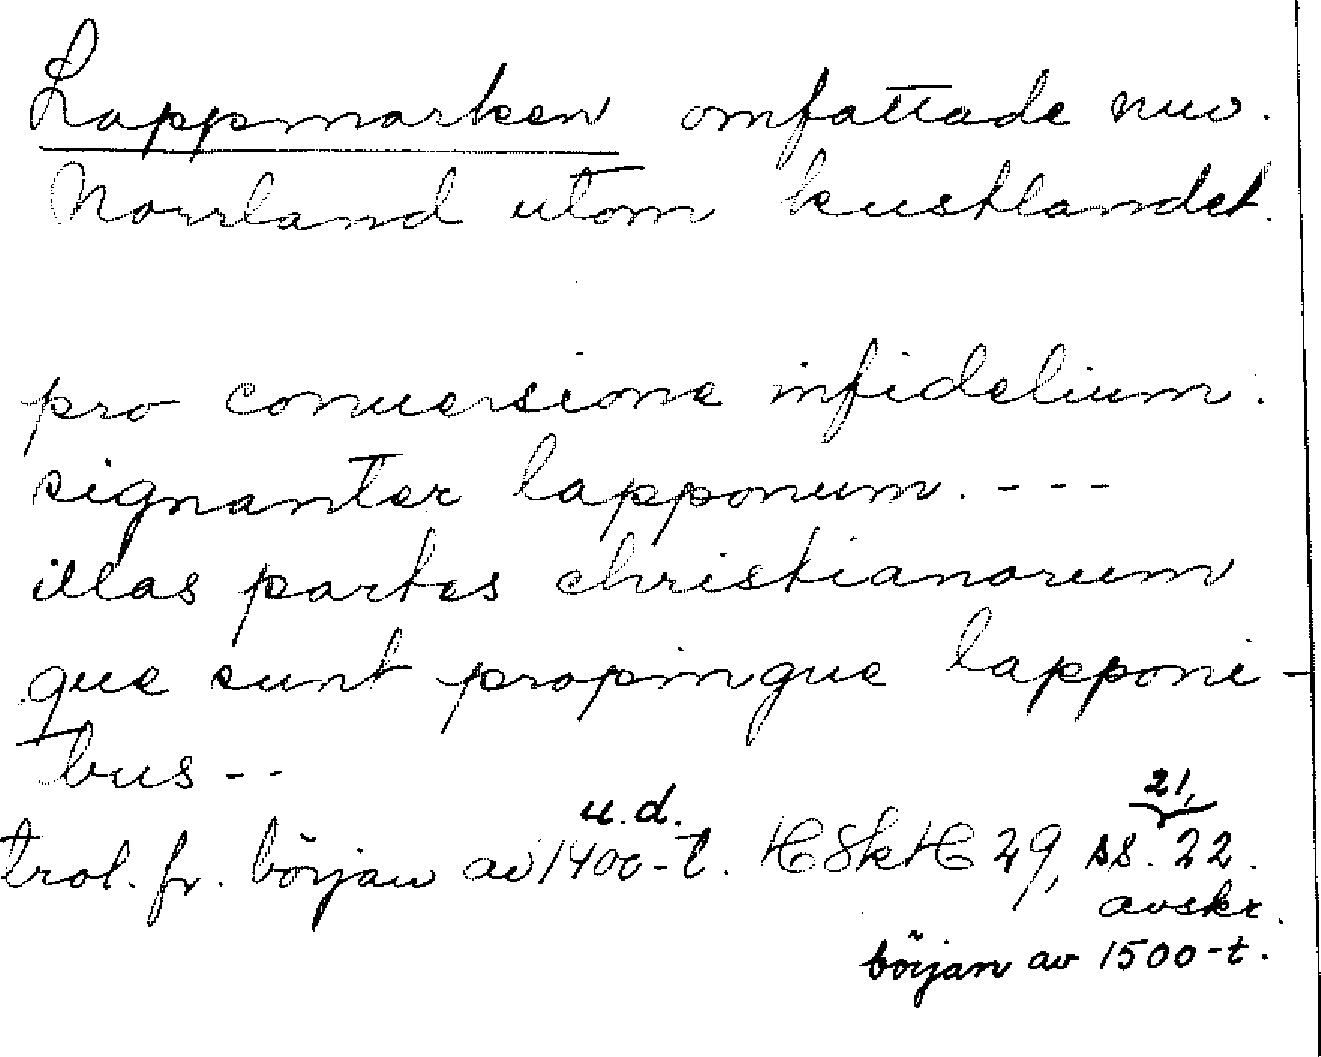 Lappmarken omfattade nuv.
Norrland utom kustlandet.
pro conuersione infidelium.
signanter lapponum. - - -
illas partes christianorum
que sunt propinque lapponi-
bus - -
u.d.
21,
trol. fr. början av 1400-t. HSkH 29, ss. 22.
avskr.
början av 1500-t.